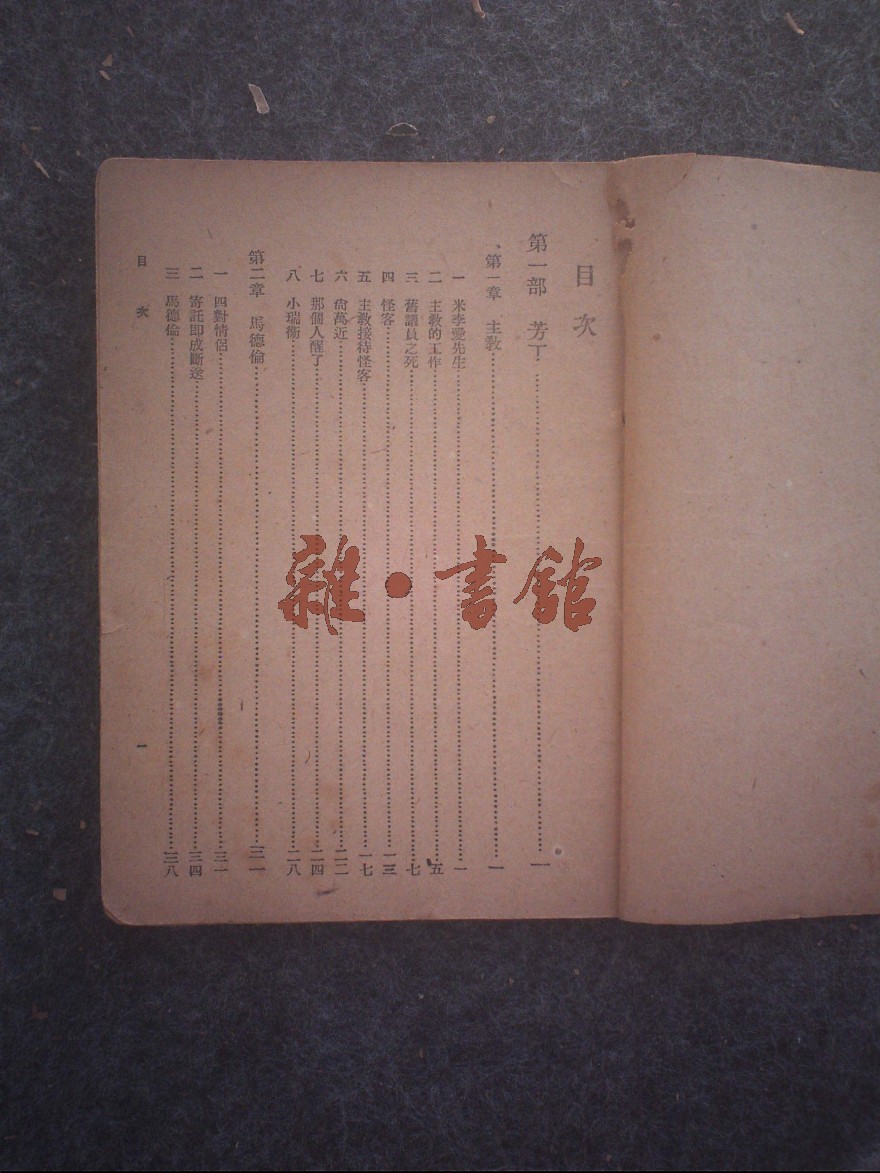 目次
第一部　芳丁…………一
第一章　主教…………一
一　米李愛先生…………一
二　主教的工作…………五
三　舊議員之死…………七
四　怪客…………一三
五　主教接待怪客…………一七
六　尙萬近…………二二
七　那個人醒了…………二四
八　小瑞衞…………二八
第二章　馬德倫…………三一
一　四對情侶…………三一
二　寄託卽成斷送…………三四
三　馬德倫…………三八
目次　一
雜·書館